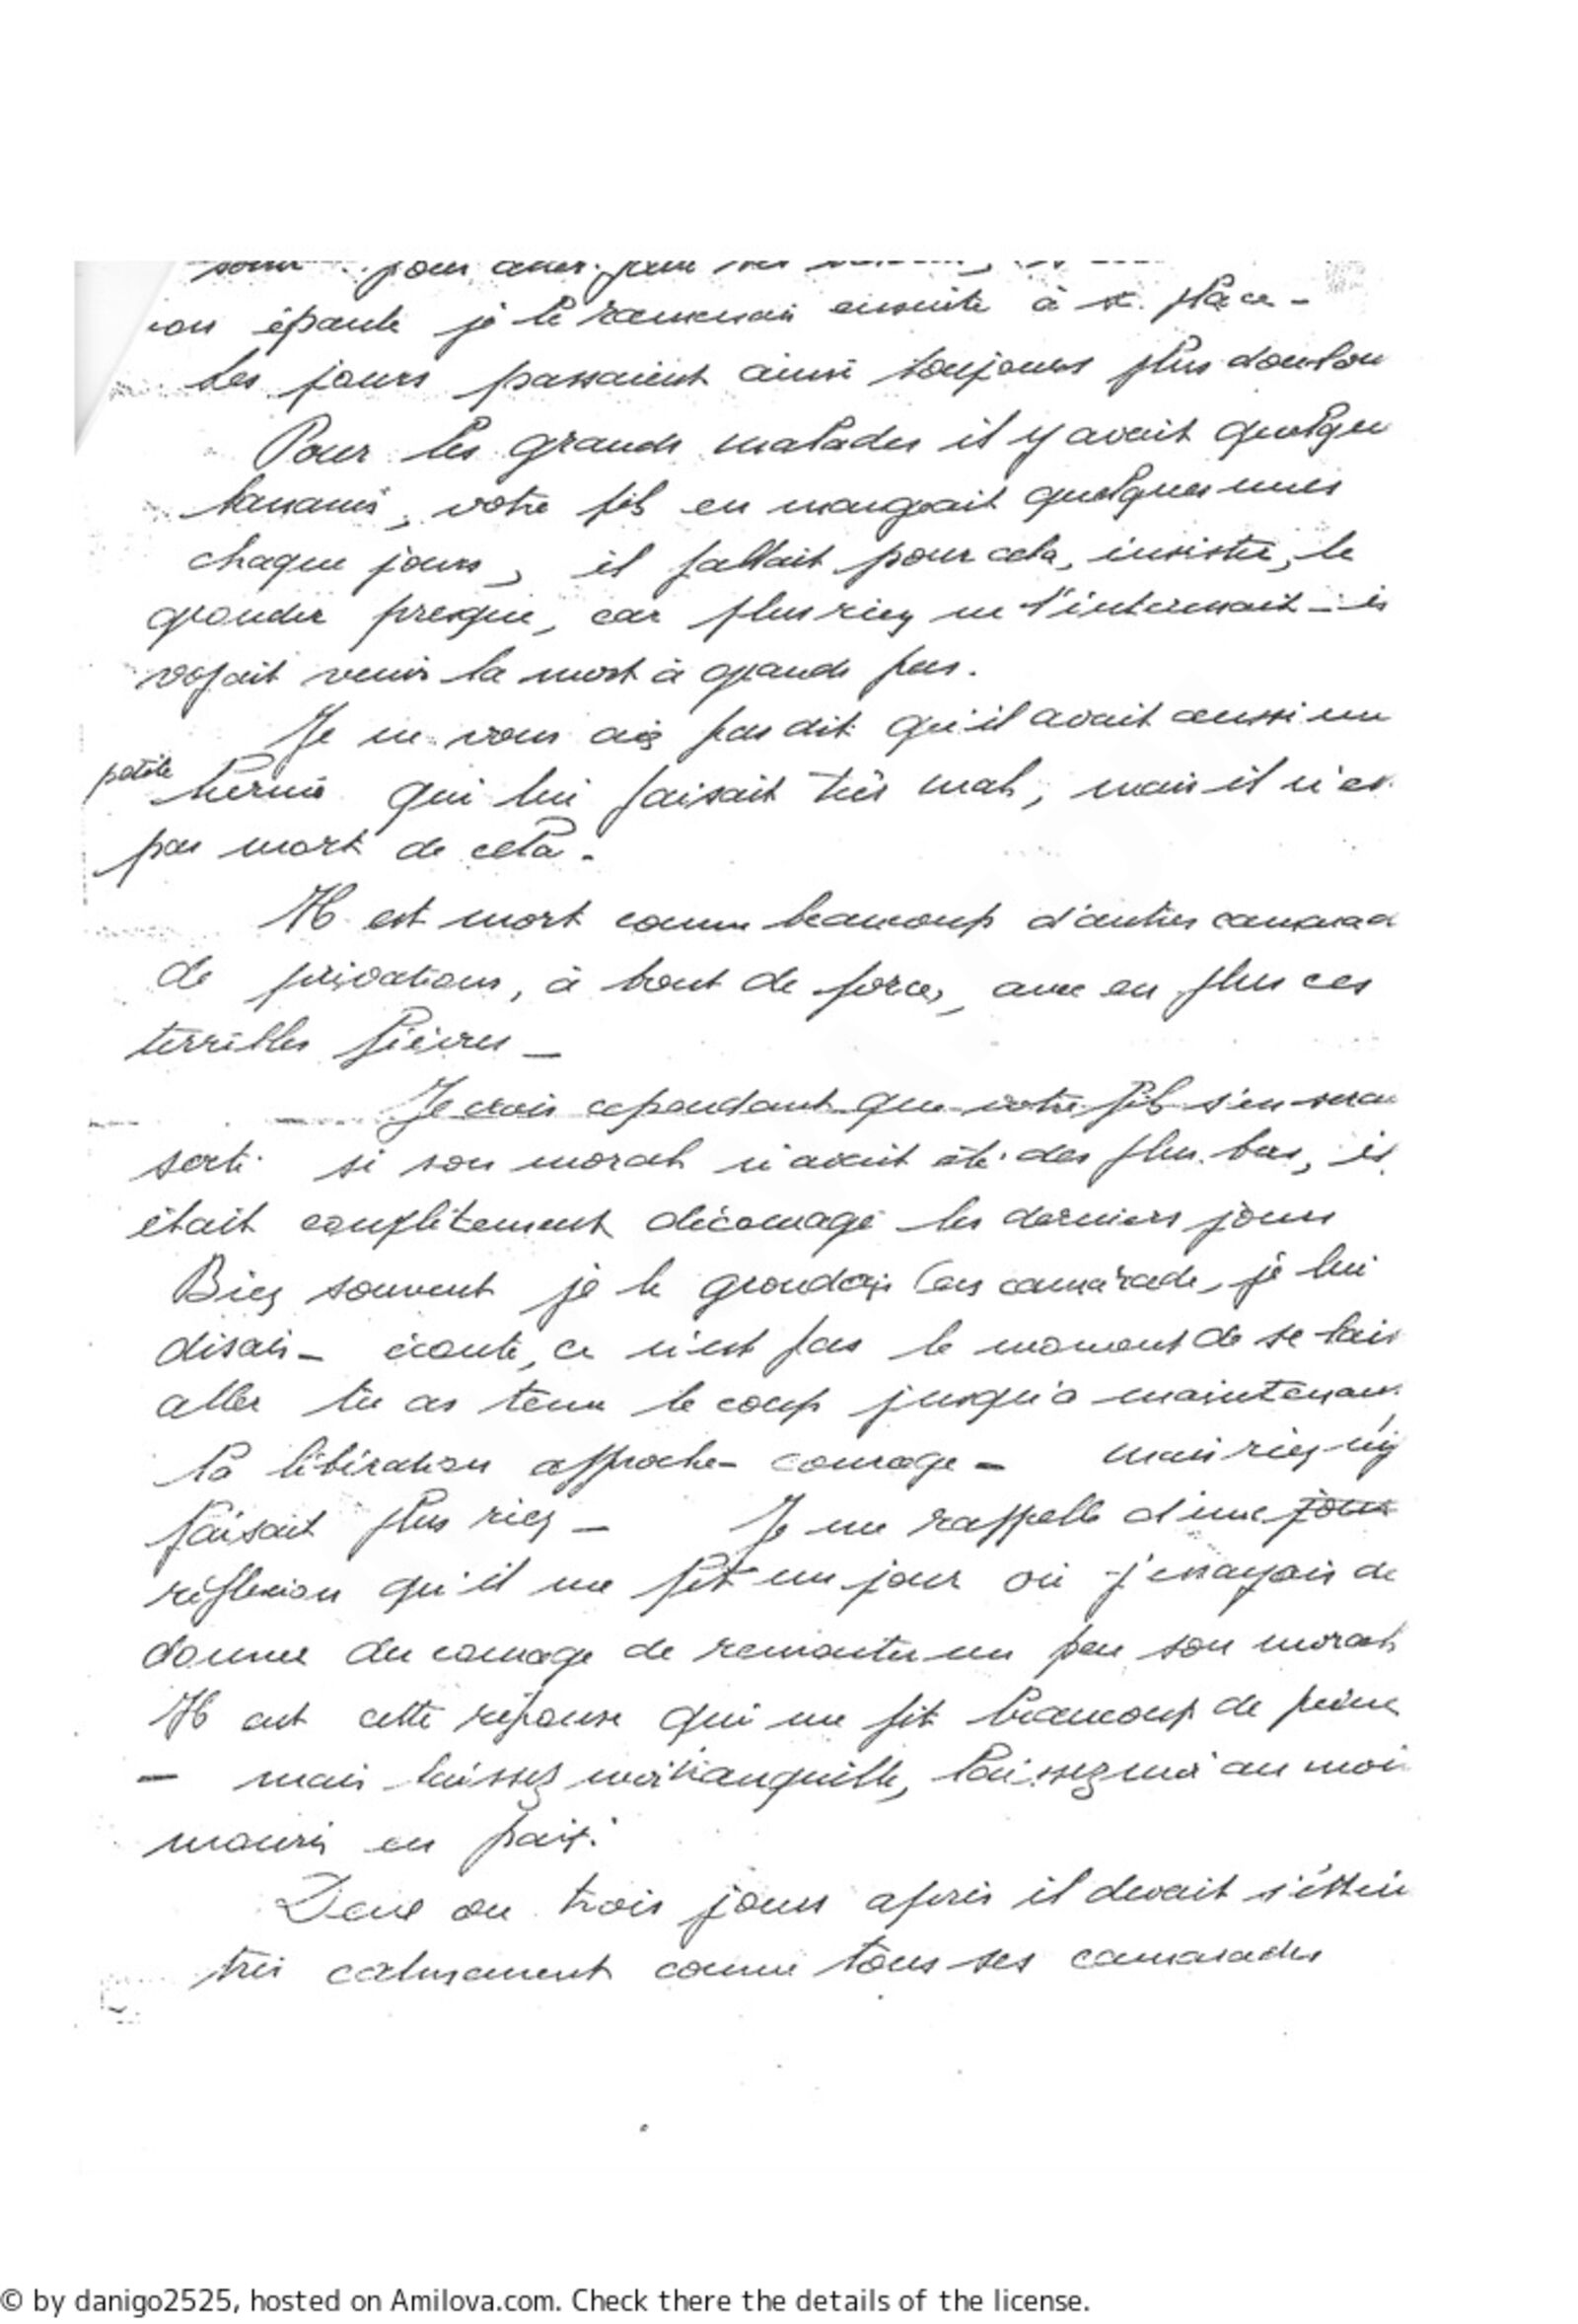 pour
épaule je le ramenais ensuite à sa place -
Les jours passaient ainsi toujours plus doulou
Pour les grands malades il y avait quelque
bananes, votre fils en mangeait quelques unes
chaque jours, il fallait pour cela, insister, le
gronder presque, car plus rien ne l'interessait - il
voyait venir la mort à grands pas.
Je ne vous ais pas dit qu'il avait aussi une
petite
hernie qui lui faisait très mal, mais il n'es
pas mort de cela.
Il est mort comme beaucoup d'autres camarad
de privations, à bout de forces, avec en plus ces
terribles fièvres -
Je crois cependant que votre fils s'en serai
sorti si son moral n'avait été des plus bas, il
était complètement découragé les derniers jours
Bien souvent je le grondais camarade, je lui
disais - écoute, ce n'est pas le moment de se lais
aller tu as tenu le coup jusqu'a maintenant
la libération approche - courage - mais rien n'y
faisait plus rien - Je me rappelle d'une jour
réflexion qu'il me fit un jour où j'essayais de
donner du courage de remonter un peu son moral
Il eut cette réponse qui me fit beaucoup de peine
- mais laissez moi tranquille, laissez moi au moi
mourir en paix.
Deux ou trois jours après il devait s'étein
très calmement comme tous ses camarades
© by danigo2525, hosted on Amilova.com. Check there the details of the license.